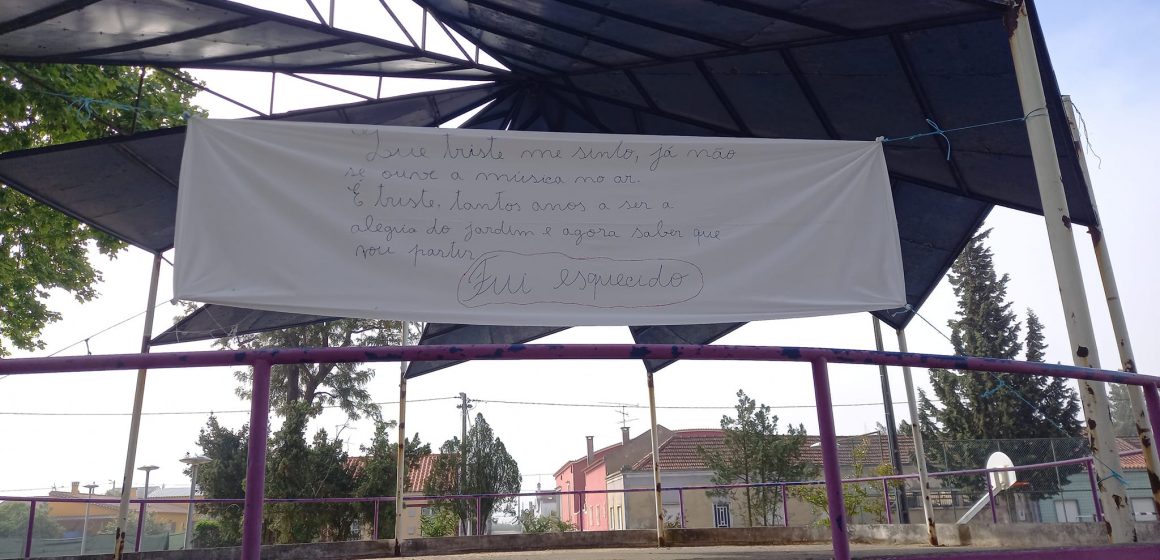 "Que triste me sinto, já não
se ouve a música no ar.
É triste, tantos anos a ser a
alegria do jardim e agora saber que
vou partir
Fui esquecido